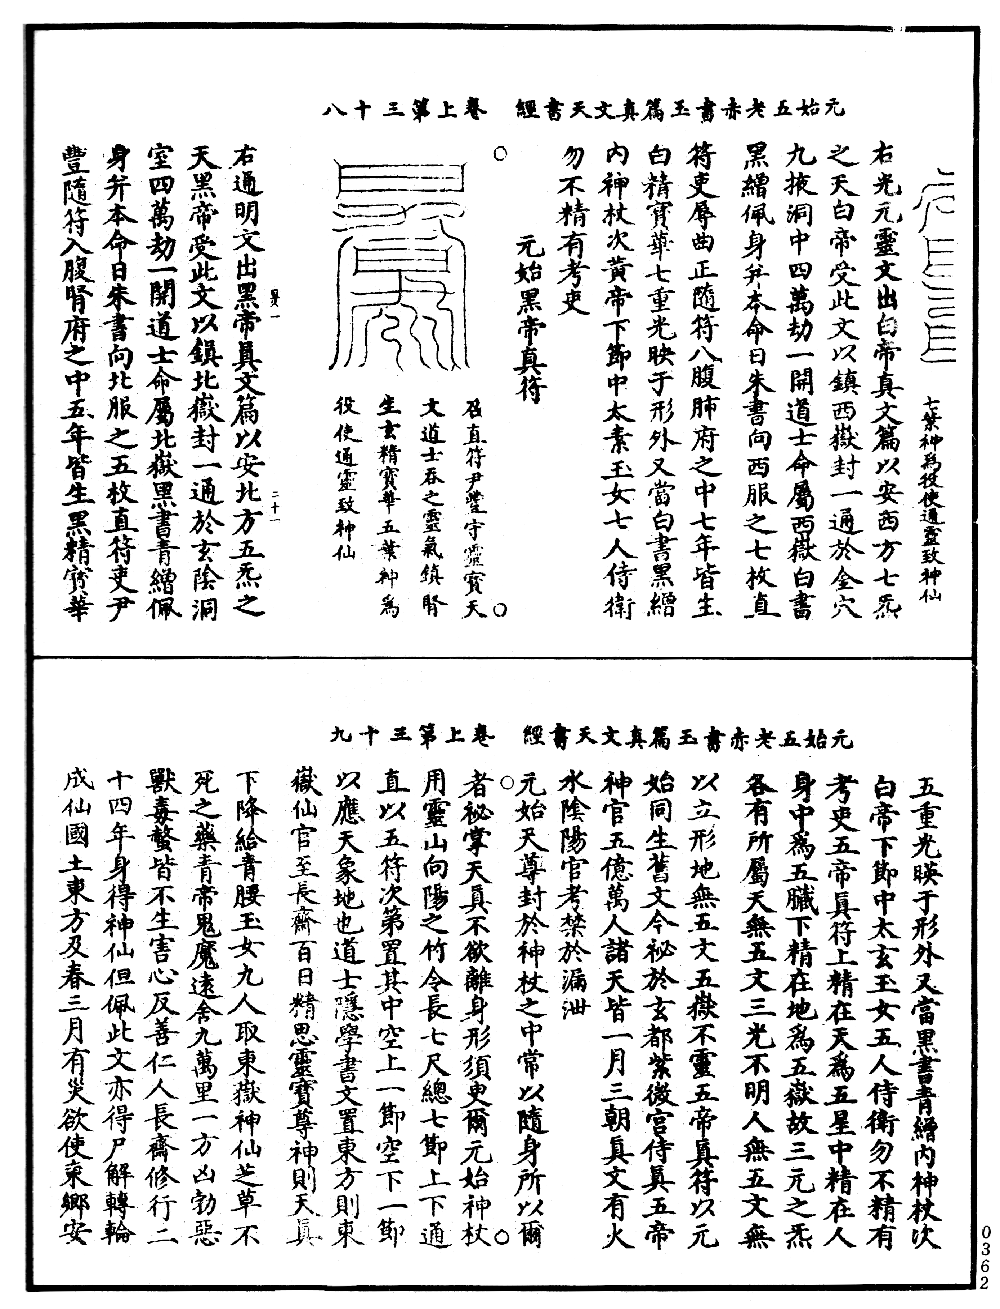 元始五老赤書玉篇真文天書經　卷上第三十八
七葉神爲役使通靈致神仙
右光元靈文出白帝真文篇以安西方七炁
之天白帝受此文以鎮西嶽封一通於金穴
九掖洞中四萬劫一開道士命屬西嶽白書
黑繒佩身并本命日朱書向西服之七枚直
符吏辱曲正隨符入腹肺府之中七年皆生
白精寶華七重光映于形外又當白書黑繒
内神杖次黃帝下節中太素玉女七人侍衛
勿不精有考吏
元始黑帝真符
召直符尹豐守靈寶天
文道士吞之靈氣鎮腎
生玄精寶華五葉神爲
役使通靈致神仙
右通明文出黑帝真文篇以安北方五炁之
天黑帝受此文以鎮北嶽封一通於玄陰洞
室四萬劫一開道士命屬北嶽黑書青繒佩
身并本命日朱書向北服之五枚直符吏尹
豐隨符入腹腎府之中五年皆生黑精寶華
元始五老赤書玉篇真文天書經　卷上第三十九
五重光暎于形外又當黑書青繒内神杖次
白帝下節中太玄玉女五人侍衛勿不精有
考吏五帝真符上精在天爲五星中精在人
身中爲五臟下精在地爲五嶽故三元之炁
各有所屬天無五文三光不明人無五文無
以立形地無五文五嶽不靈五帝真符以元
始同生舊文今祕於玄都紫微宫侍真五帝
神官五億萬人諸天皆一月三朝真文有火
水陰陽官考禁於漏泄
元始天尊封於神杖之中常以隨身所以爾
者祕掌天真不欲離身形須臾爾元始神杖
用靈山向陽之竹令長七尺總七節上下通
直以五符次第置其中空上一節空下一節
以應天象地也道士隱學書文置東方則東
嶽仙官至長齋百日精思靈寶尊神則天真
下降給青腰玉女九人取東嶽神仙芝草不
死之藥青帝鬼魔遠舍九萬里一方凶勃惡
獸毒螫皆不生害心反善仁人長齋修行二
十四年身得神仙但佩此文亦得尸解轉輪
成仙國土東方及春三月有災欲使東鄉安
0362